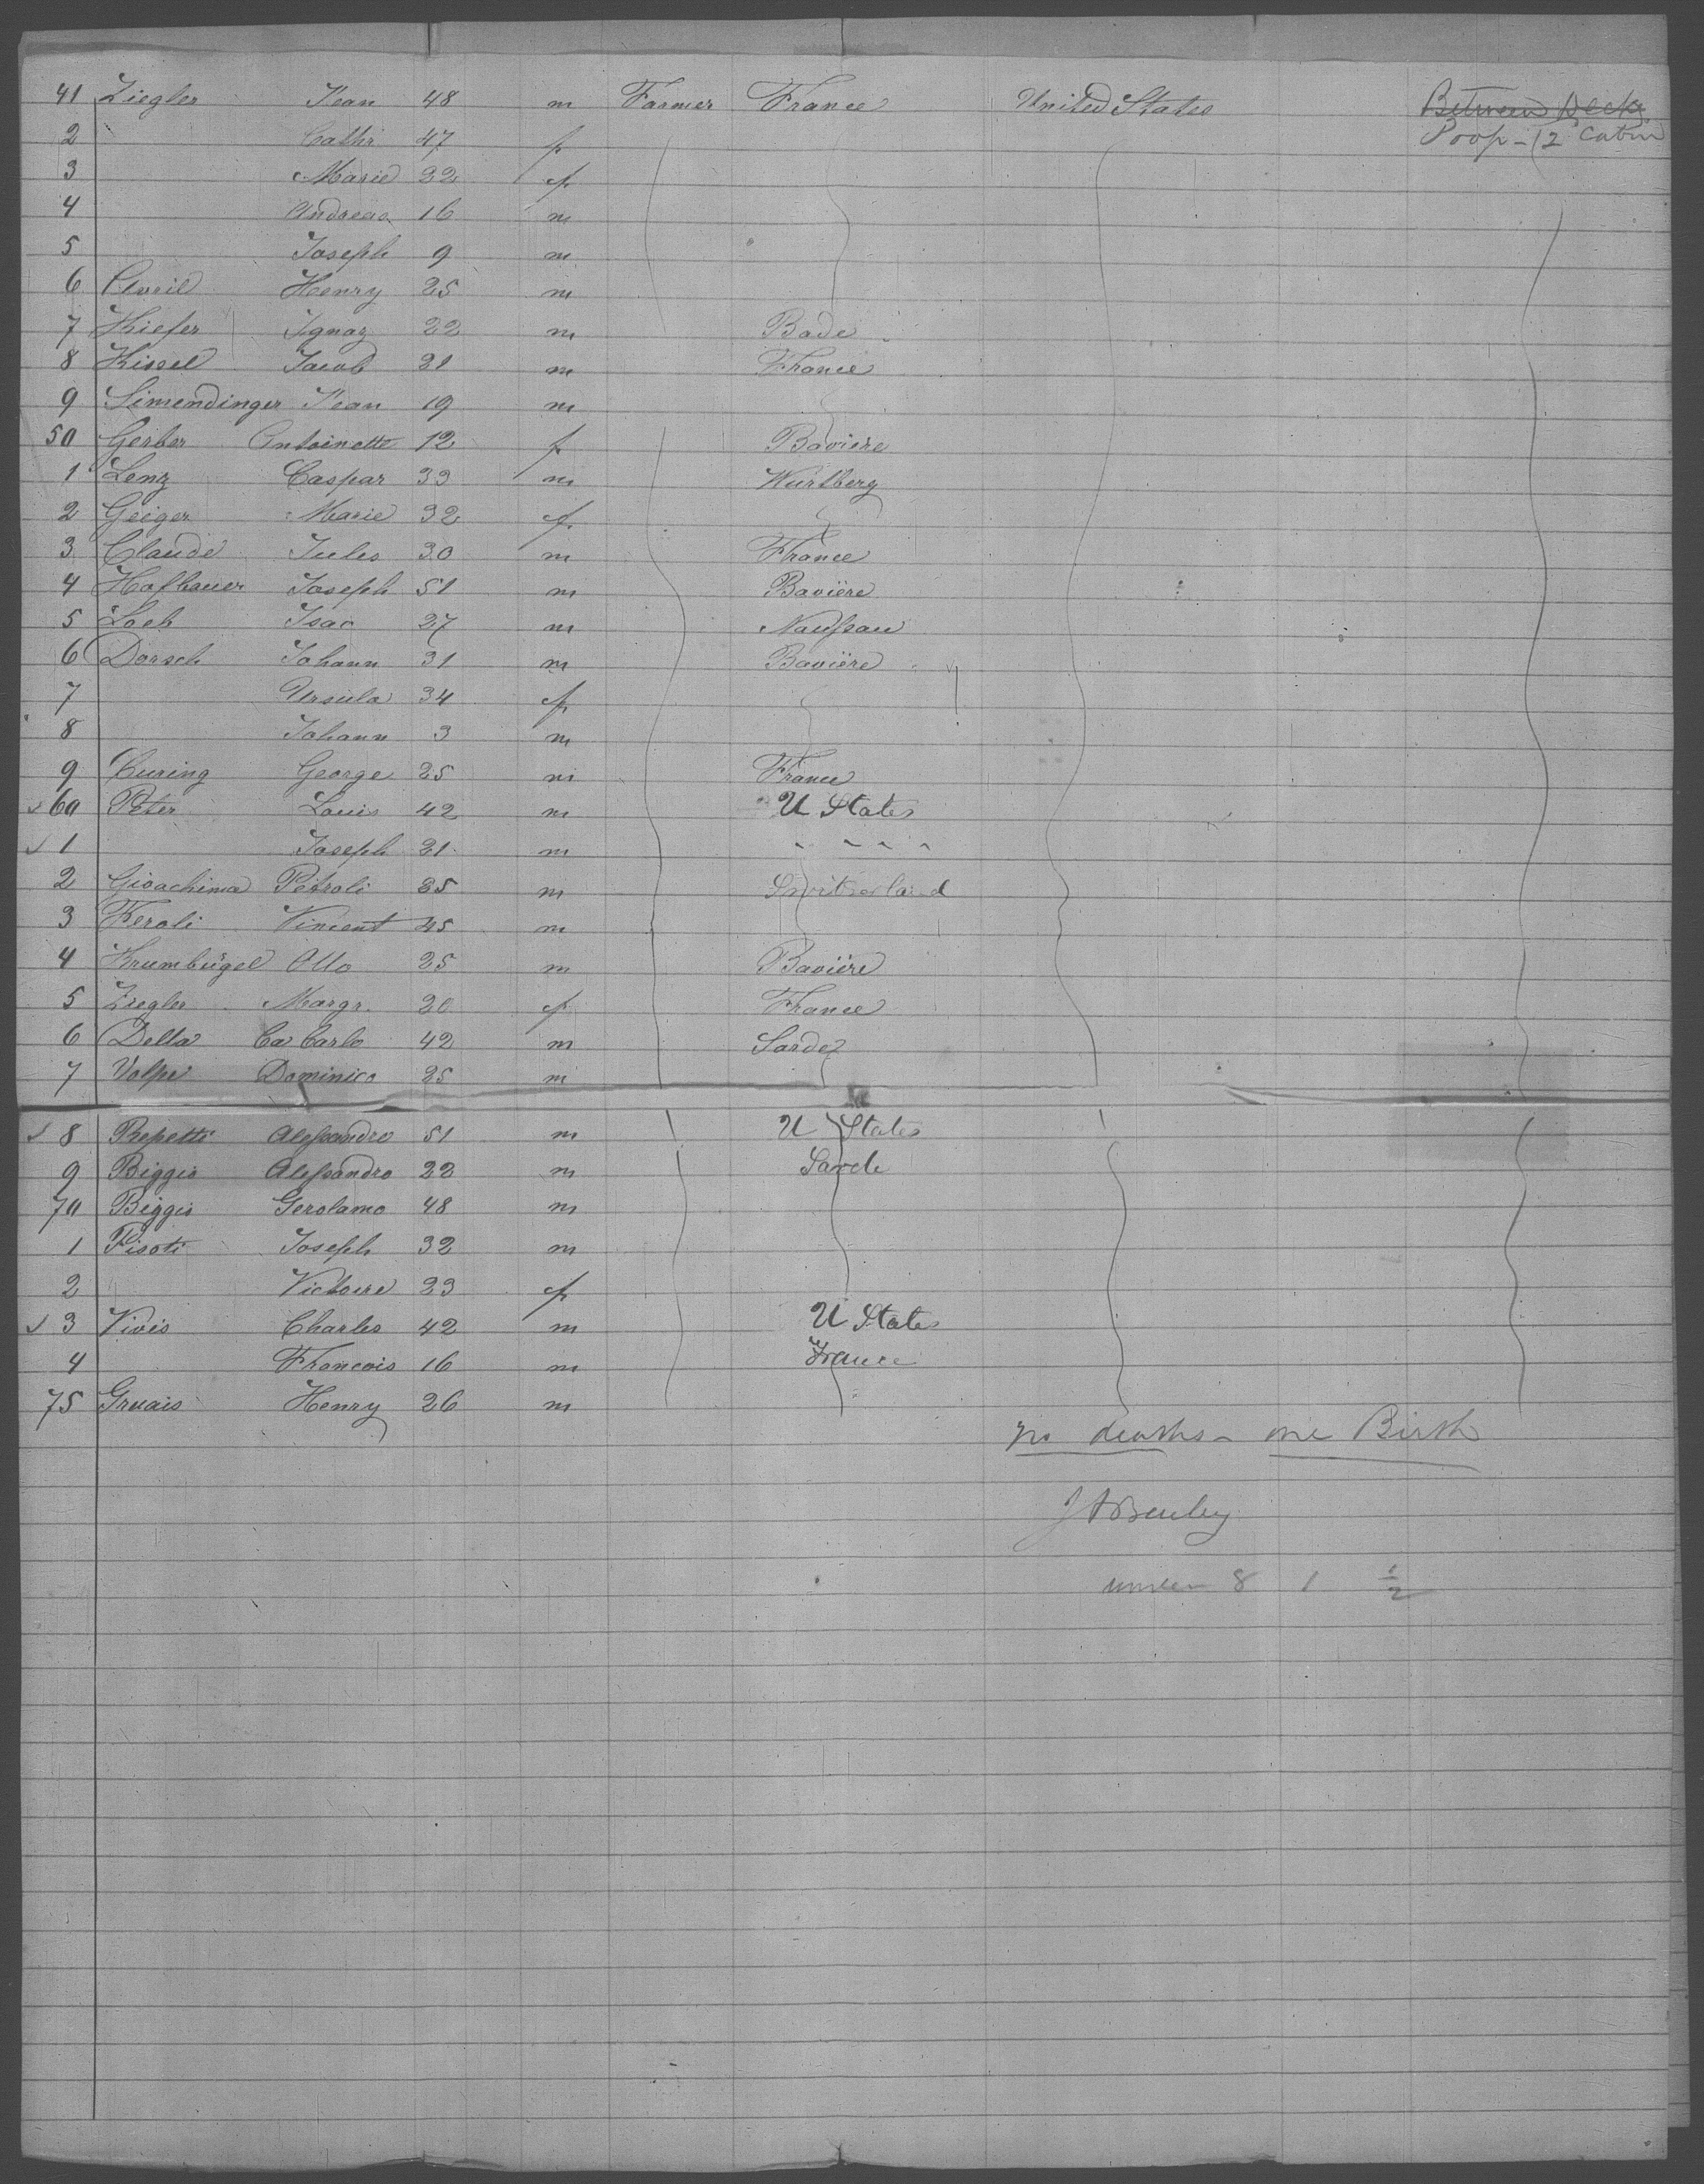 41 Ziegler Jean 48 m Farmer France United States Between Deck
2 Cathr 47 f Poop - 2d Cabin
3 Marie 22 f
4 Andreas 16 m
5 Joseph 9 m
6 Avril Henry 25 m
7 Kiefer Ignaz 22 m Bade
8 Kissel Jacob 21 m France
9 Simendinger Jean 19 m
50 Gerber Antoinette 12 f Baviere
1 Lenz Caspar 33 m Würtberg
2 Geiger Marie 32 f
3 Claude Jules 30 m France
4 Hofbauer Joseph 51 m Bavière
5 Loeb Isac 27 m Naussau
6 Dorsch Johann 31 m Bavière
7 Ursula 34 f
8 Johann 3 m
9 Curing George 25 m France
60 Peter Louis 42 m U States
1 Joseph 21 m " " " "
2 Gioachima Petroli 25 m Switzerland
3 Feroli Vincent 45 m
4 Krumbügel Otto 25 m Bavière
5 Ziegler Margr. 20 f France
6 Della Ca Carlo 42 m Sarde
7 Volpe Dominico 25 m
8 Repetti Alessandro 51 m U States
9 Biggio Alessandro 22 m Sarde
70 Biggio Gerolamo 48 m
1 Pisoti Joseph 32 m
2 Victoire 23 f
3 Vivès Charles 42 m U States
4 Francois 16 m France
75 Gruais Henry 26 m
no deaths - one Birth
under 8 1 1/2